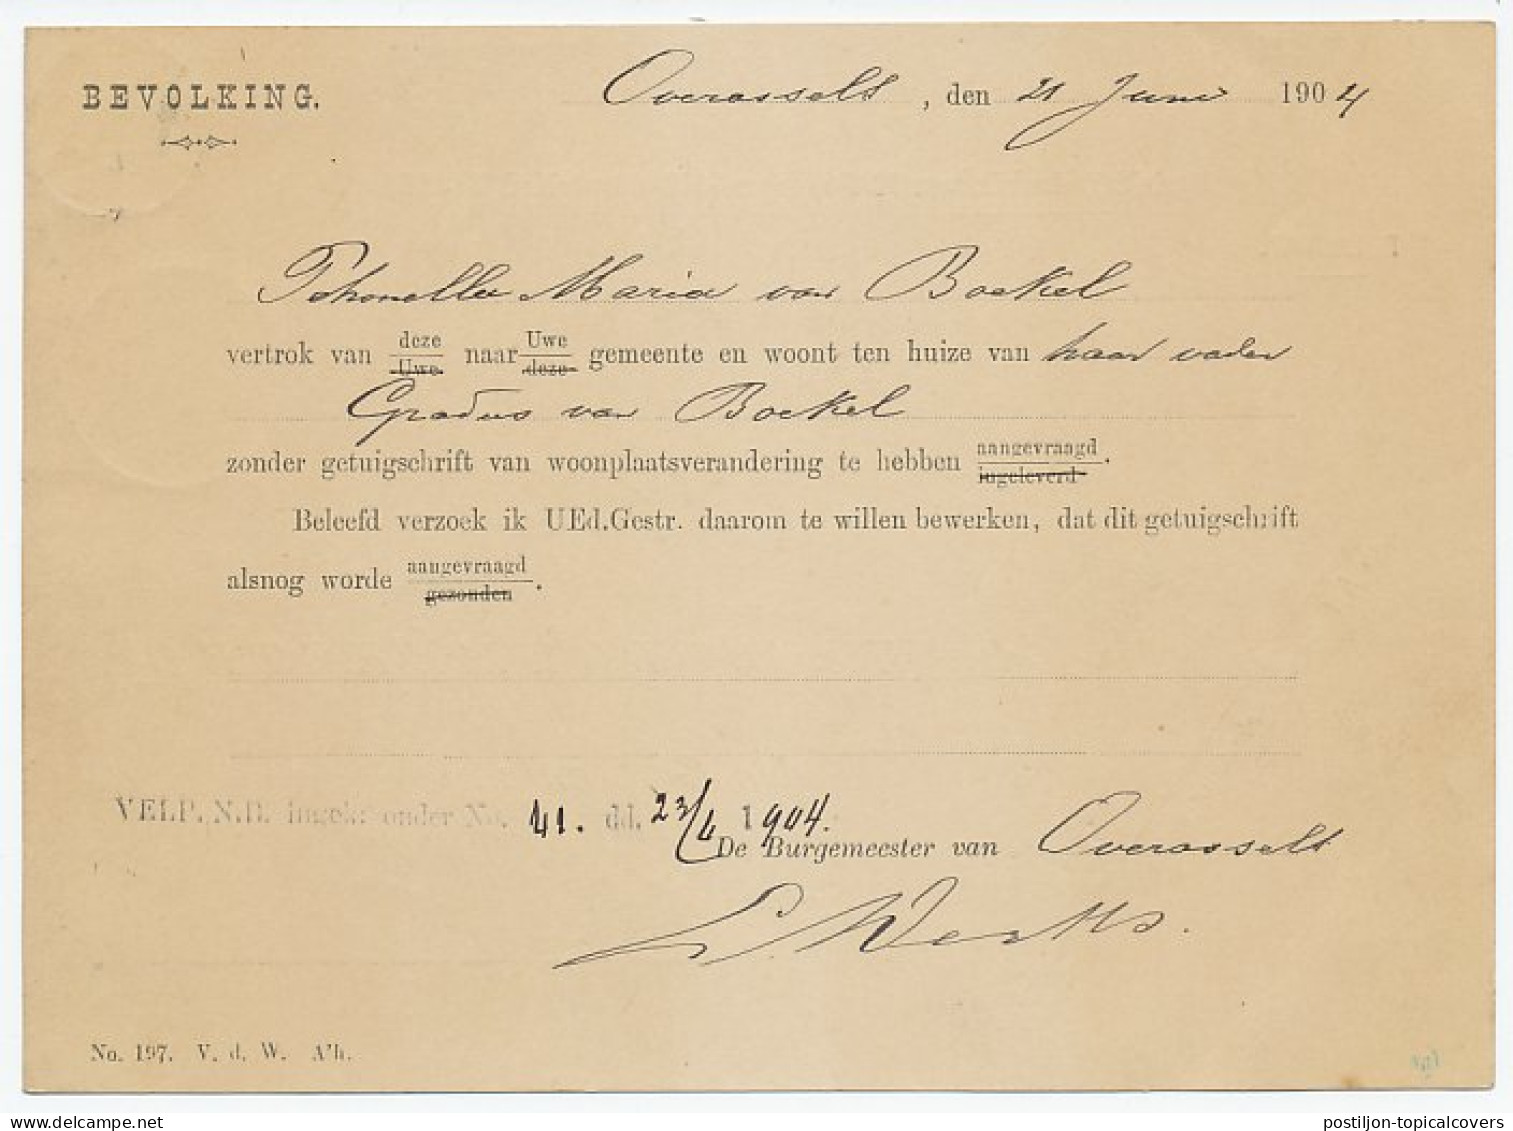 BEVOLKING.
Overasselt, den 21 Juni 1904
Maria van Boekel
vertrok van deze Uwe naar Uwe deze gemeente en woont ten huize van haar vader
Gradus van Boekel
zonder getuigschrift van woonplaatsverandering te hebben aangevraagd ingeleverd.
Beleefd verzoek ik UEd.Gestr. daarom te willen bewerken, dat dit getuigschrift
alsnog worde aangevraagd gezonden.
VELP. N.B. ingek: onder No. 41. dd. 23/6 1904.
De Burgemeester van Overasselt
No. 197. V. d. W. A'h.
postiljon-topicalcovers